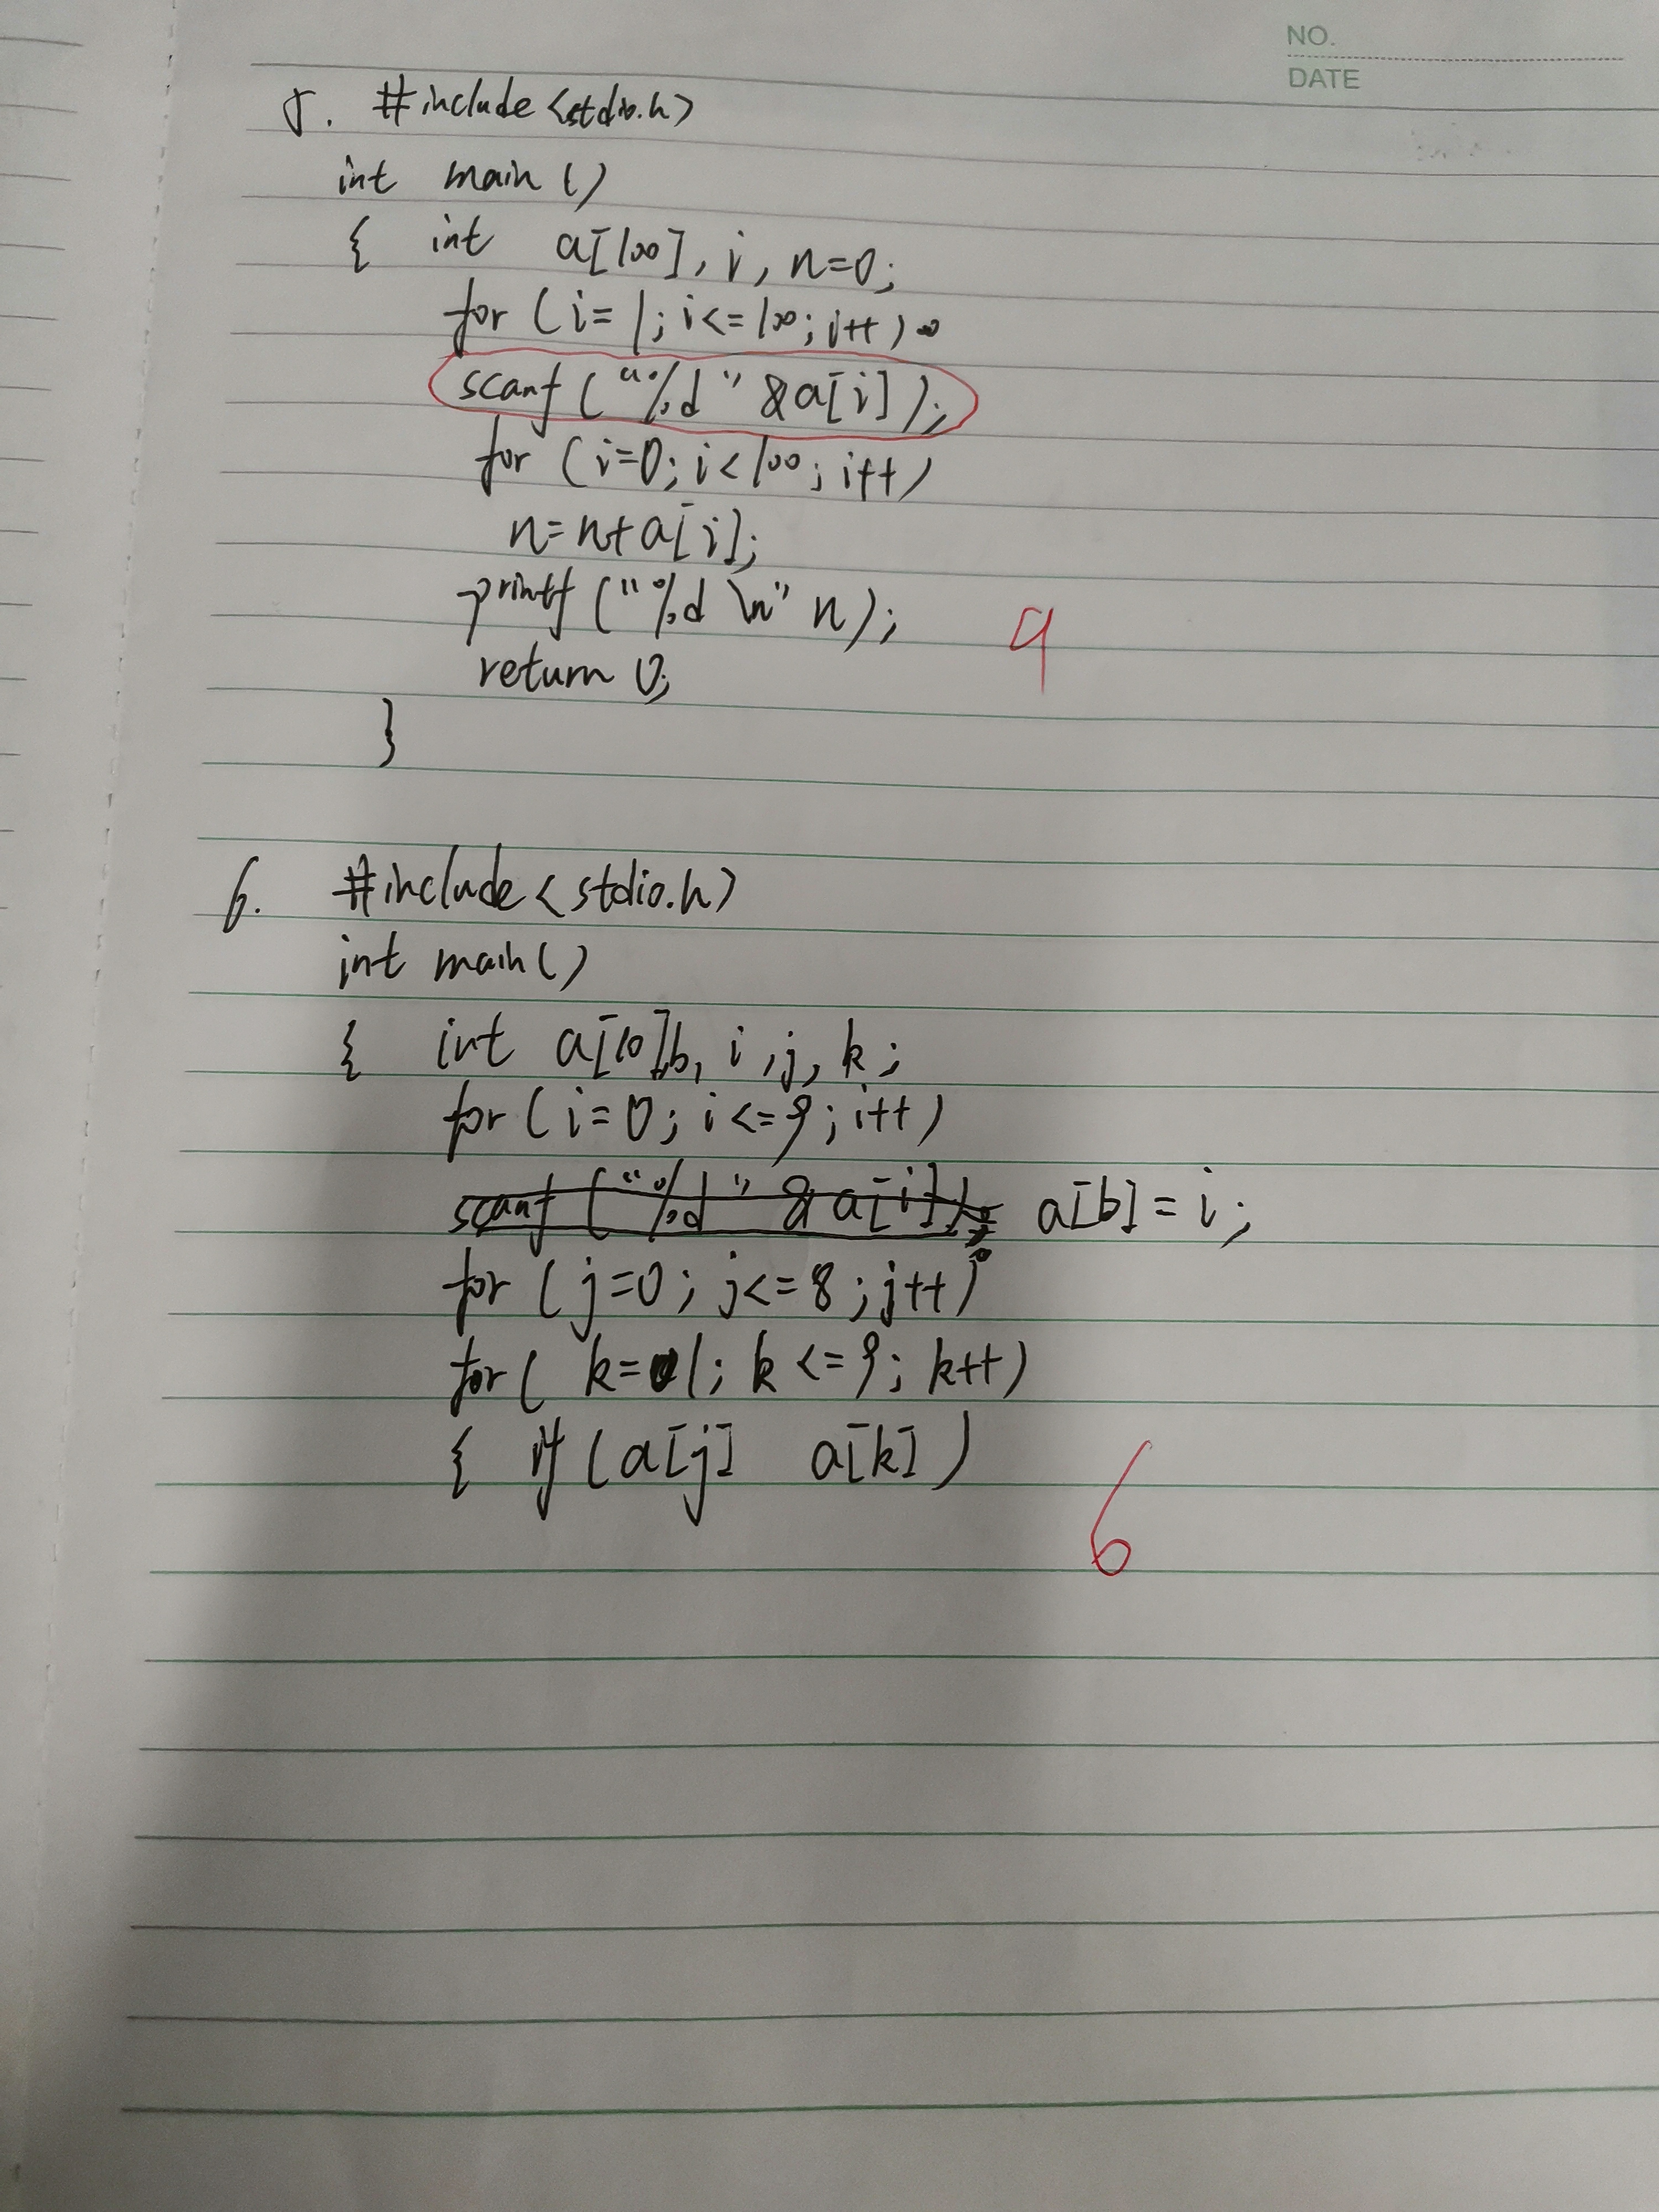 NO.
DATE
5. #include<stdio.h>
int main()
{ int a[100], i, n=0;
for (i=1; i<=100; i++)
scanf("%d" &a[i]);
for (i=0; i<100; i++)
n=n+a[i];
printf("%d \n" n);
9
return 0;
}
6. #include<stdio.h>
int main()
{ int a[10]b, i, j, k;
for (i=0; i<=9; i++)
scanf("%d" & a[i]); a[b]=i;
for (j=0; j<=8; j++)
for( k=1; k<=9; k++)
{ if (a[j] a[k])
6